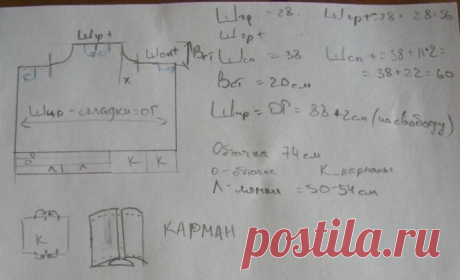 Шгр = 28.
Шгр+ = 28 + 28 = 56
Шгр+
Шсп = 38
Шсп+ = 38 + 11*2 =
= 38 + 22 = 60
Вст = 20 см
Шир = ОГ = 88 + 2 см (на свободу)
Обтачка 74 см
О - обтачка
К - карманы
Л - лямки = 50-54 см
Шгр+
Шсп+
Вст
х
Шир - складки = ОГ
О
Л
Л
К
К
К
КАРМАН
postila.ru